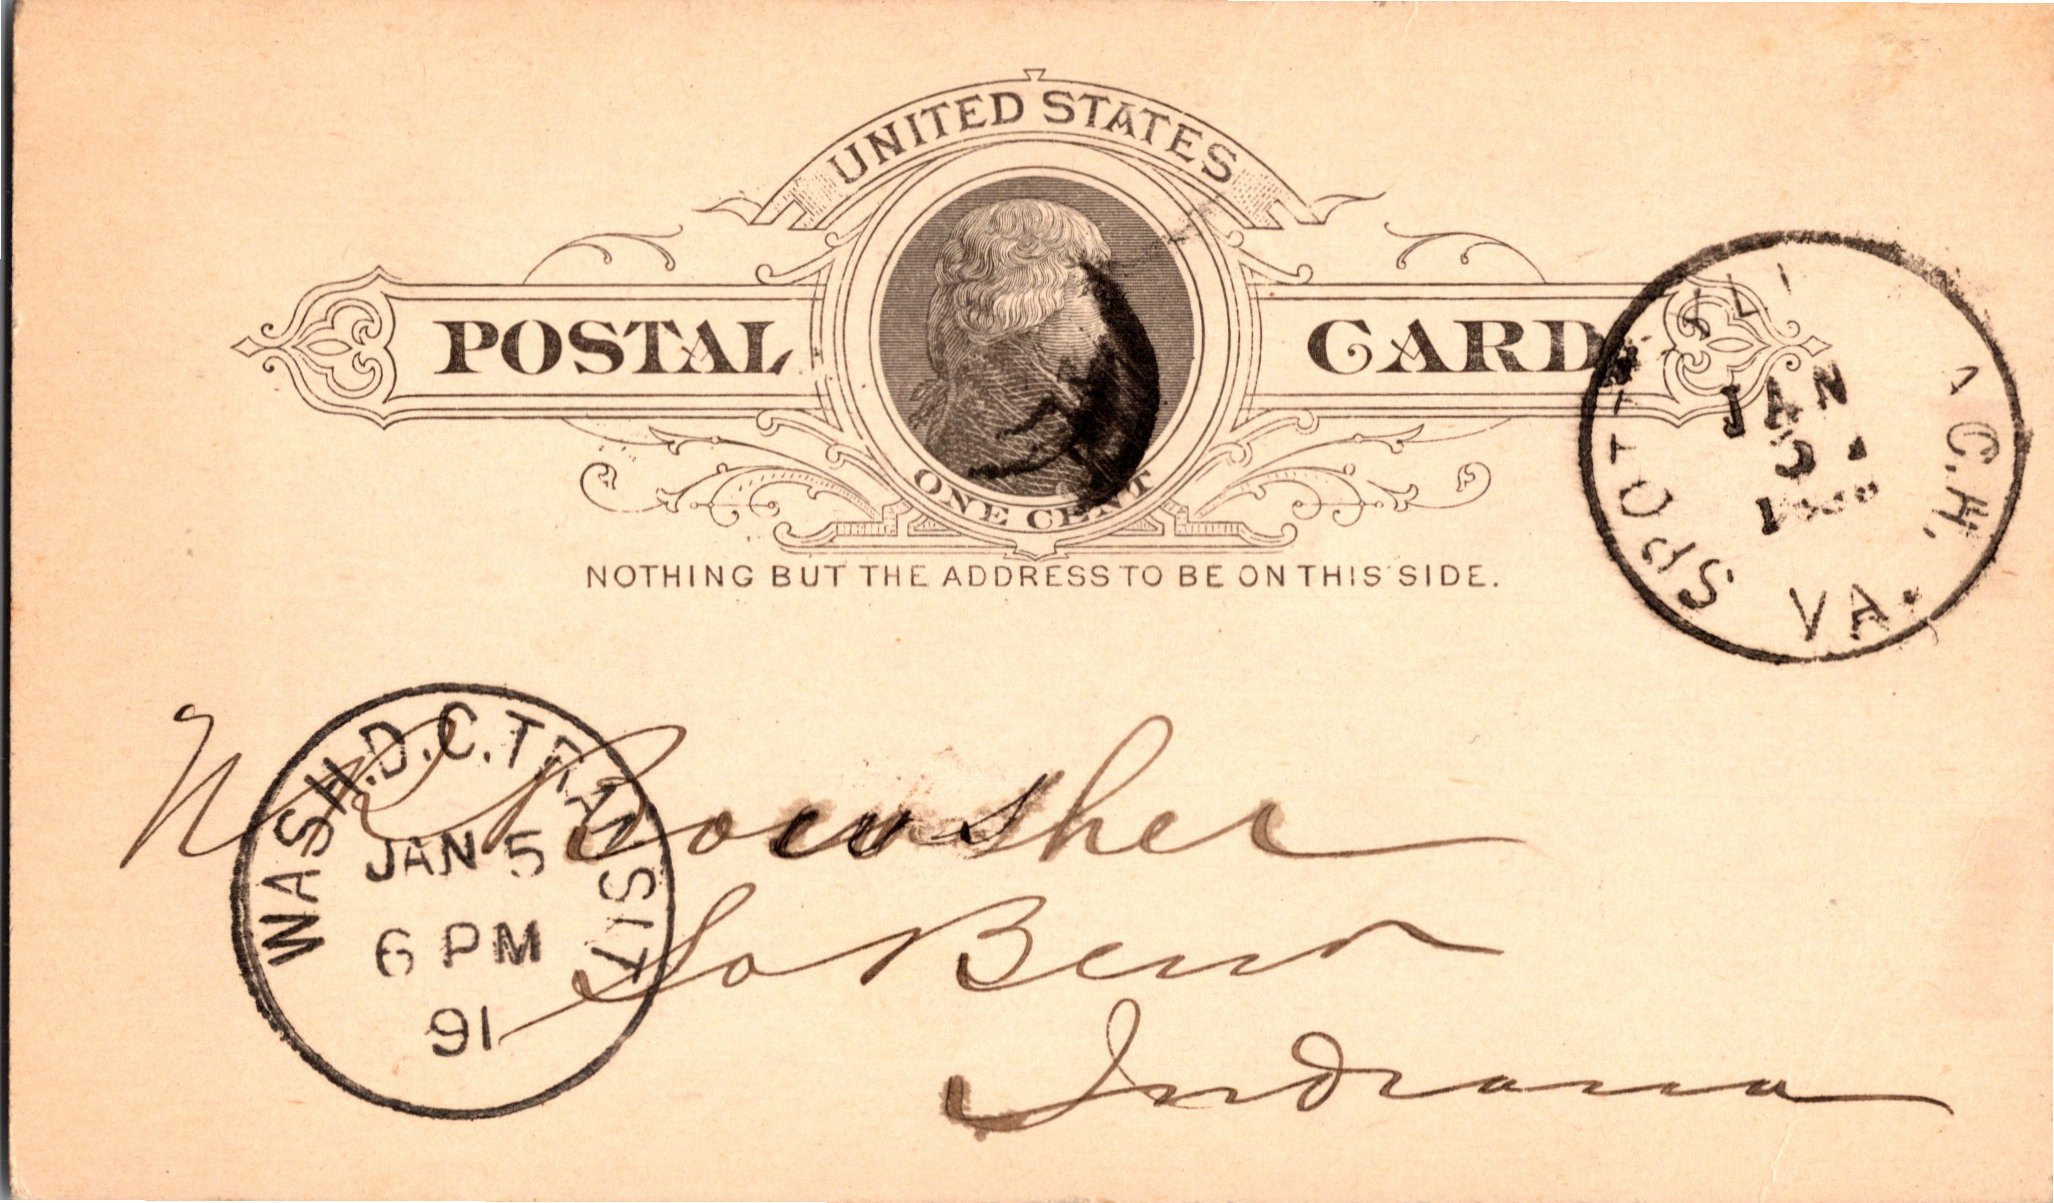 UNITED STATES
POSTAL CARD
ONE CENT
NOTHING BUT THE ADDRESS TO BE ON THIS SIDE.
SPOT ILL A C.H. VA.
JAN
WASH. D.C. TRANSIT
JAN 5
6 PM
91
Bowsher
So Bend
Indiana